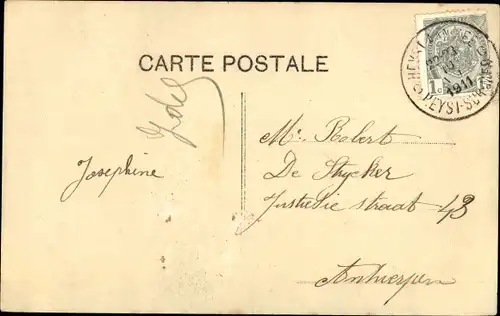 CARTE POSTALE
HEYST
1911
HEYST-SUR
1c
Josephine
Mr Robert
De Stycker
Justitie straat 43
Antwerpen